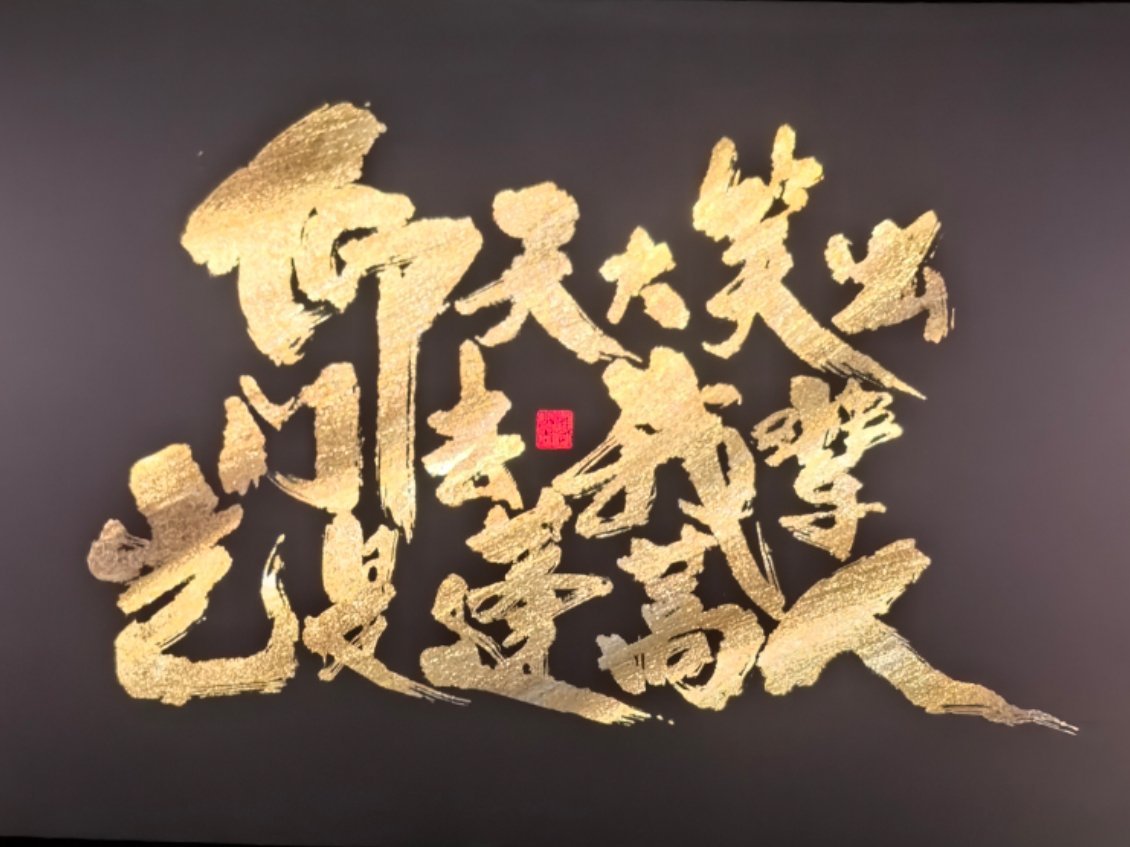 仰天大笑出
门去我辈
岂是蓬蒿人